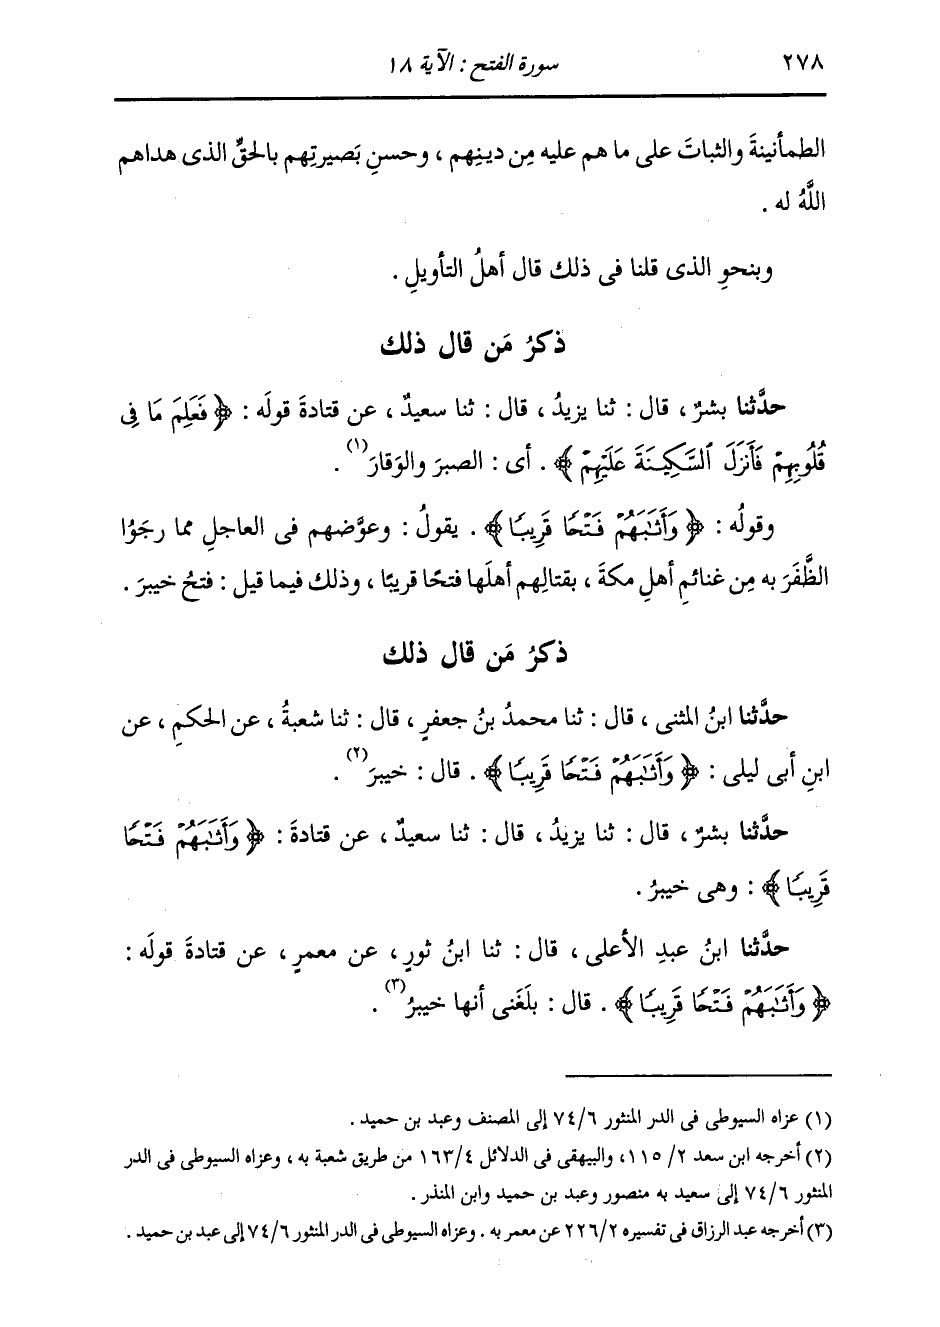 ٢٧٨ سورة الفتح : الآية ١٨
الطمأنينةَ والثباتَ على ما هم عليه مِن دينِهم ، وحسنِ بَصيرتِهم بالحقِّ الذى هداهم
اللَّهُ له .
وبنحوِ الذى قلنا فى ذلك قال أهلُ التأويلِ .
ذكرُ مَن قال ذلك
حدَّثنا بشرٌ ، قال : ثنا يزيدُ ، قال : ثنا سعيدٌ ، عن قتادةَ قولَه : ﴿ فَعَلِمَ مَا فِى
قُلُوبِهِمْ فَأَنزَلَ ٱلسَّكِينَةَ عَلَيْهِمْ ﴾ . أى : الصبرَ والوَقارَ (١) .
وقولُه : ﴿ وَأَثَـٰبَهُمْ فَتْحًا قَرِيبًا ﴾ . يقولُ : وعوَّضهم فى العاجلِ مما رجَوُا
الظَّفَرَ به مِن غنائمِ أهلِ مكةَ ، بقتالِهم أهلَها فتحًا قريبًا ، وذلك فيما قيل : فتحُ خيبرَ .
ذكرُ مَن قال ذلك
حدَّثنا ابنُ المثنى ، قال : ثنا محمدُ بنُ جعفرٍ ، قال : ثنا شعبةُ ، عن الحكمِ ، عن
ابنِ أبى ليلى : ﴿ وَأَثَـٰبَهُمْ فَتْحًا قَرِيبًا ﴾ . قال : خيبرَ (٢) .
حدَّثنا بشرٌ ، قال : ثنا يزيدُ ، قال : ثنا سعيدٌ ، عن قتادةَ : ﴿ وَأَثَـٰبَهُمْ فَتْحًا
قَرِيبًا ﴾ : وهى خيبرُ .
حدَّثنا ابنُ عبدِ الأعلى ، قال : ثنا ابنُ ثورٍ ، عن معمرٍ ، عن قتادةَ قولَه :
﴿ وَأَثَـٰبَهُمْ فَتْحًا قَرِيبًا ﴾ . قال : بلَغنى أنها خيبرُ (٣) .
(١) عزاه السيوطى فى الدر المنثور ٧٤/٦ إلى المصنف وعبد بن حميد .
(٢) أخرجه ابن سعد ٢/ ١١٥، والبيهقى فى الدلائل ١٦٣/٤ من طريق شعبة به ، وعزاه السيوطى فى الدر
المنثور ٧٤/٦ إلى سعيد به منصور وعبد بن حميد وابن المنذر .
(٣) أخرجه عبد الرزاق فى تفسيره ٢٢٦/٢ عن معمر به . وعزاه السيوطى فى الدر المنثور ٧٤/٦ إلى عبد بن حميد .